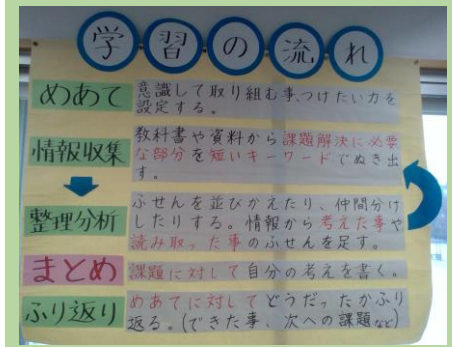 学習の流れ
めあて
意識して取り組む事、つけたい力を
設定する。
情報収集
教科書や資料から課題解決に必要
な部分を短いキーワードでぬき出
す。
整理分析
ふせんを並びかえたり、仲間分け
したりする。情報から考えた事や
読み取った事のふせんを足す。
まとめ
課題に対して自分の考えを書く。
ふり返り
めあてに対してどうだったかふり
返る。(できた事、次への課題など)